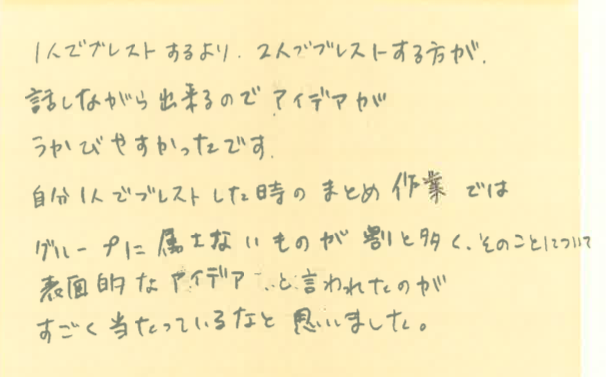 1人でブレストするより、2人でブレストする方が、
話しながら出来るのでアイデアが
うかびやすかったです。
自分1人でブレストした時のまとめ作業では
グループに属さないものが割と多く、そのことについて
表面的なアイデア、と言われたのが
すごく当たっているなと思いました。